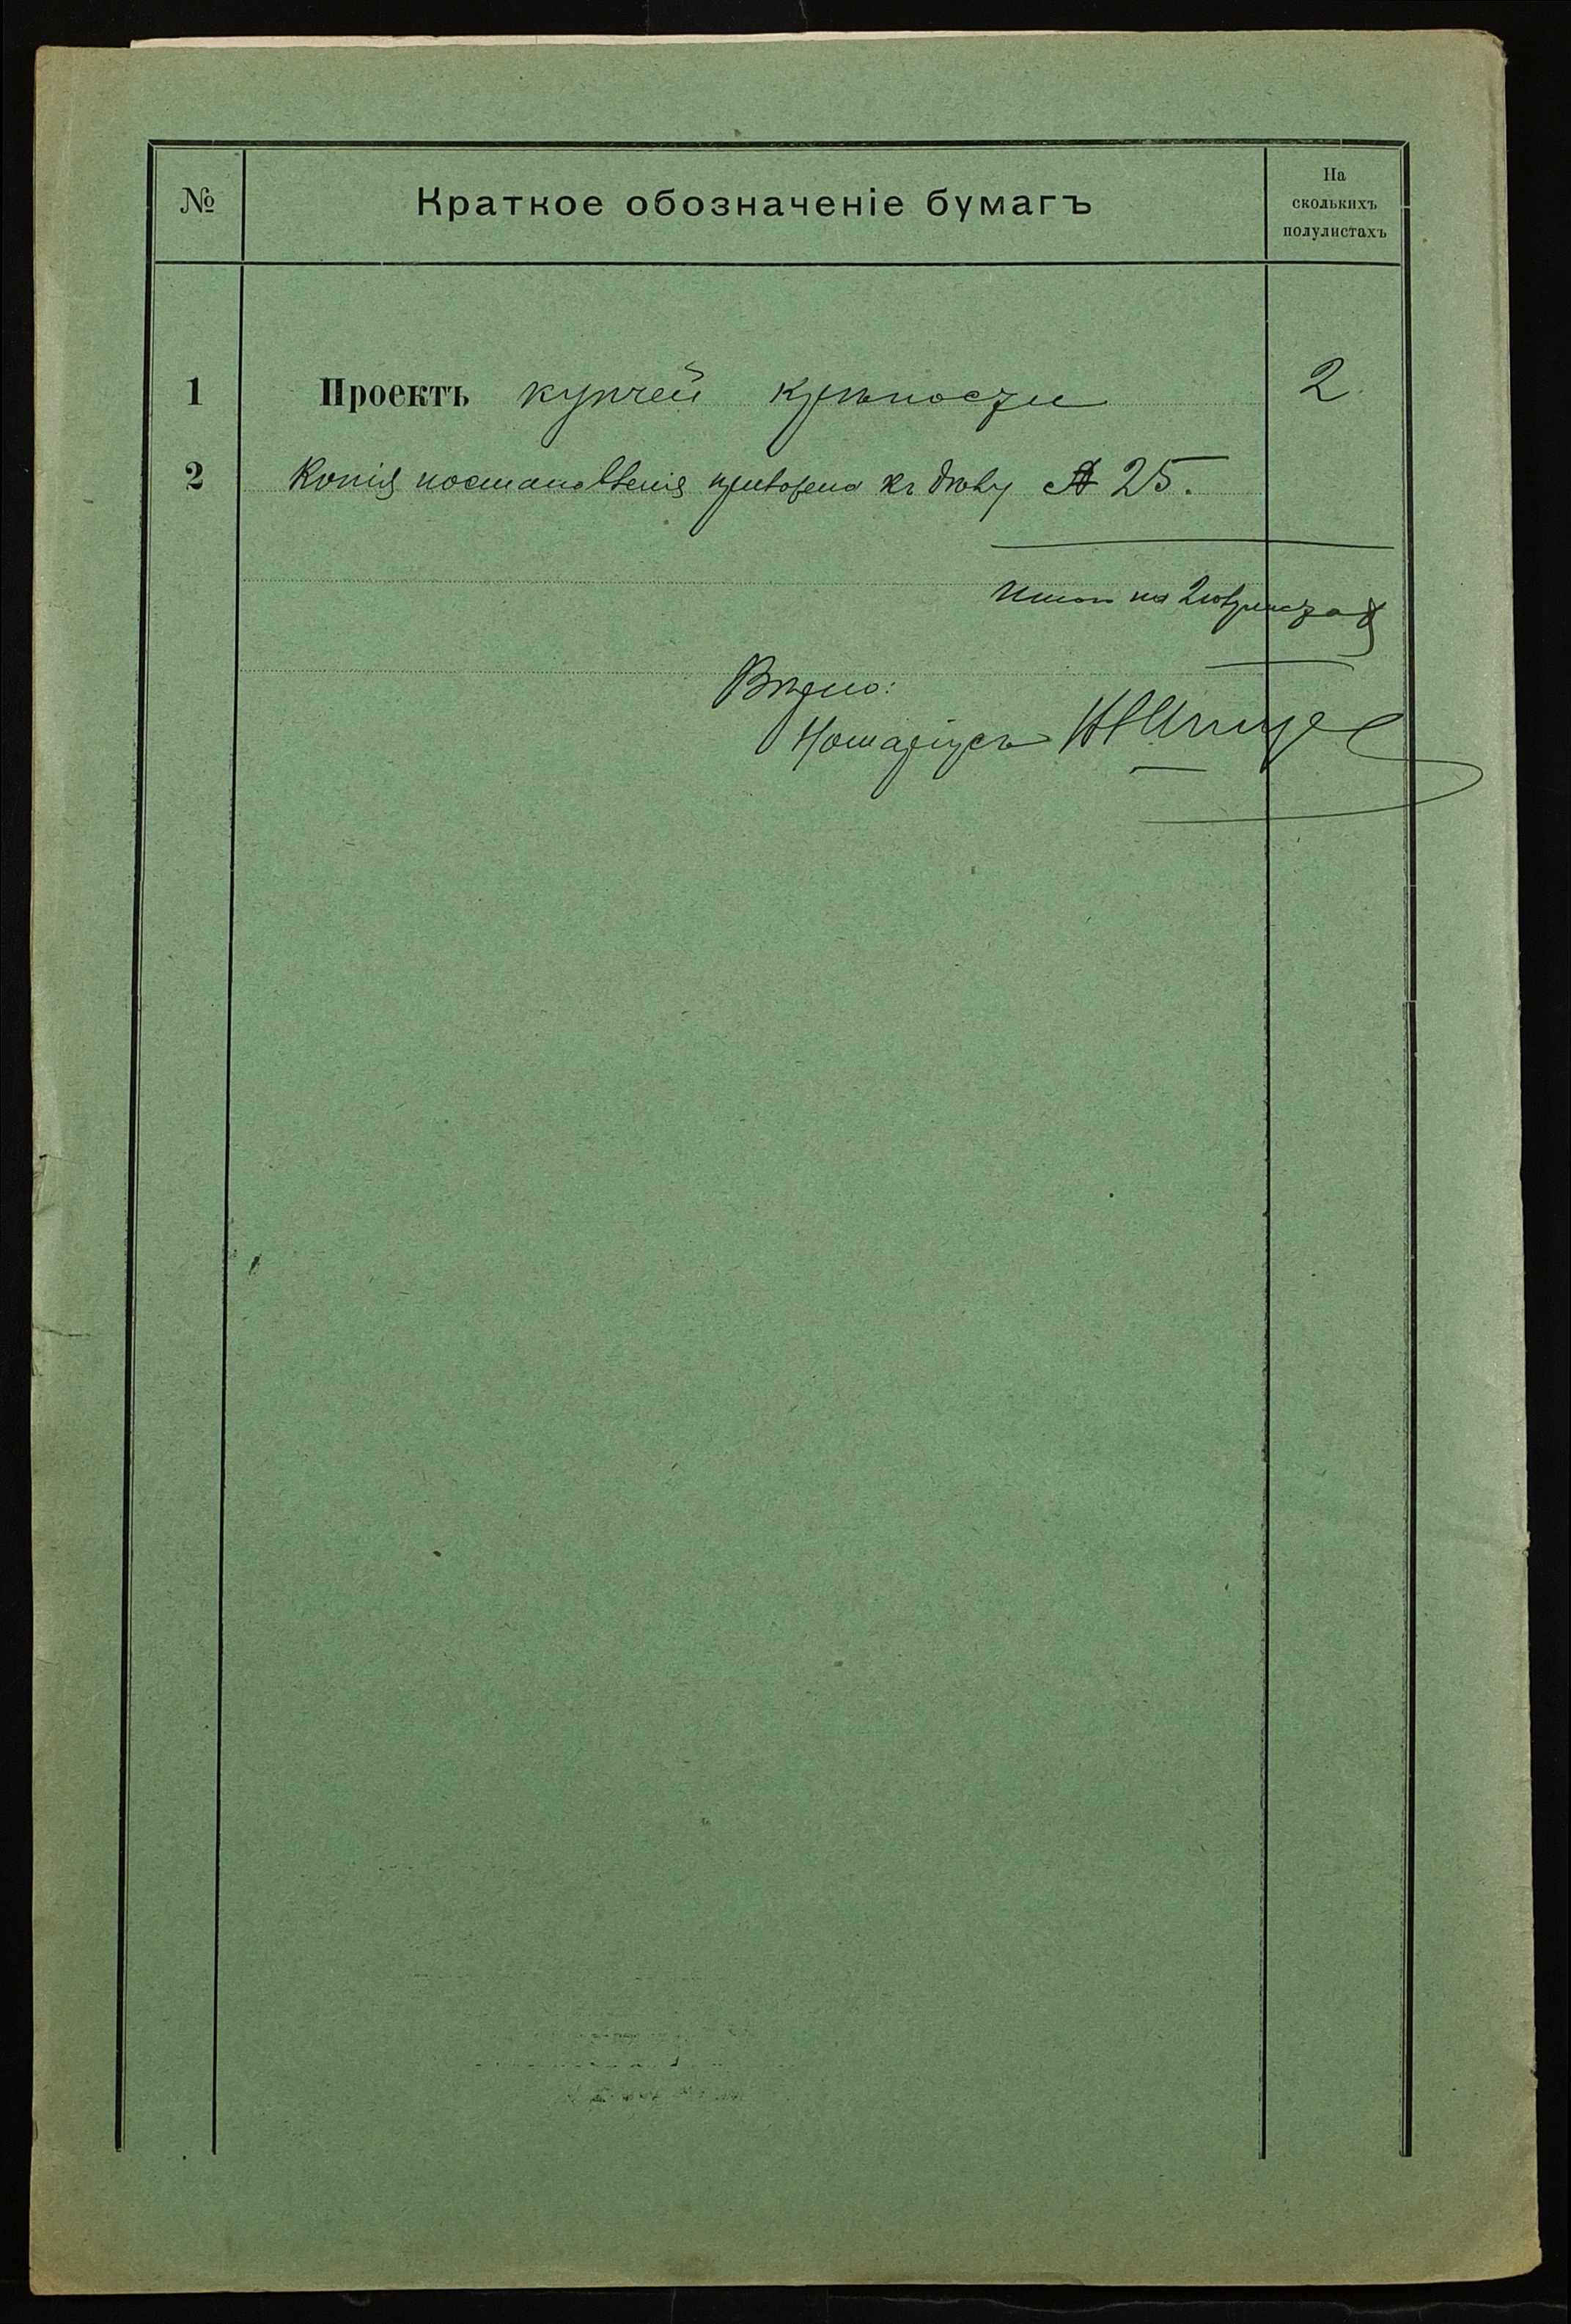 №
Краткое обозначеніе бумагъ
На
сколькихъ
полулистахъ
1 Проектъ купчей крѣпости 2
2 Копія постановленія приложена къ дѣлу № 25.
Итого на 2
Вѣрно:
Нотаріусъ